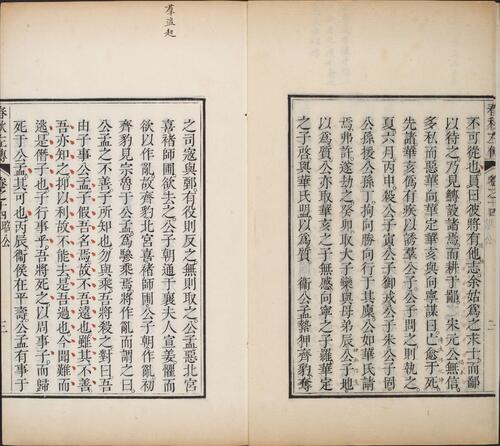 春秋左傳 卷之十四 昭公
不可從也員曰彼將有他志余姑爲之求士而鄙
以待之乃見鱄設諸焉而耕于鄙 宋元公無信
多私而惡華向華定華亥與向寧謀曰亡愈于死
先諸華亥僞有疾以誘羣公子公子問之則執之
夏六月丙申殺公子寅公子御戎公子朱公子固
公孫援公孫丁拘向勝向行于其廩公如華氏請
焉弗許遂劫之癸卯取大子欒與母弟辰公子地
以爲質公亦取華亥之子無慼向寧之子羅華定
之子啓與華氏盟以爲質 衞公孟縶狎齊豹奪
羣盗起
之司寇與鄄有役則反之無則取之公孟惡北宮
喜褚師圃欲去之公子朝通于襄夫人宣姜懼而
欲以作亂故齊豹北宮喜褚師圃公子朝作亂初
齊豹見宗魯于公孟爲驂乘焉將作亂而謂之曰
公孟之不善子所知也勿與乘吾將殺之對曰吾
由子事公孟子假吾名焉故不吾遠也雖其不善
吾亦知之抑以利故不能去是吾過也今聞難而
逃是僭子也子行事乎吾將死之以周事子而歸
死于公孟其可也丙辰衞侯在平壽公孟有事于
春秋左傳 卷之十四 昭公 三